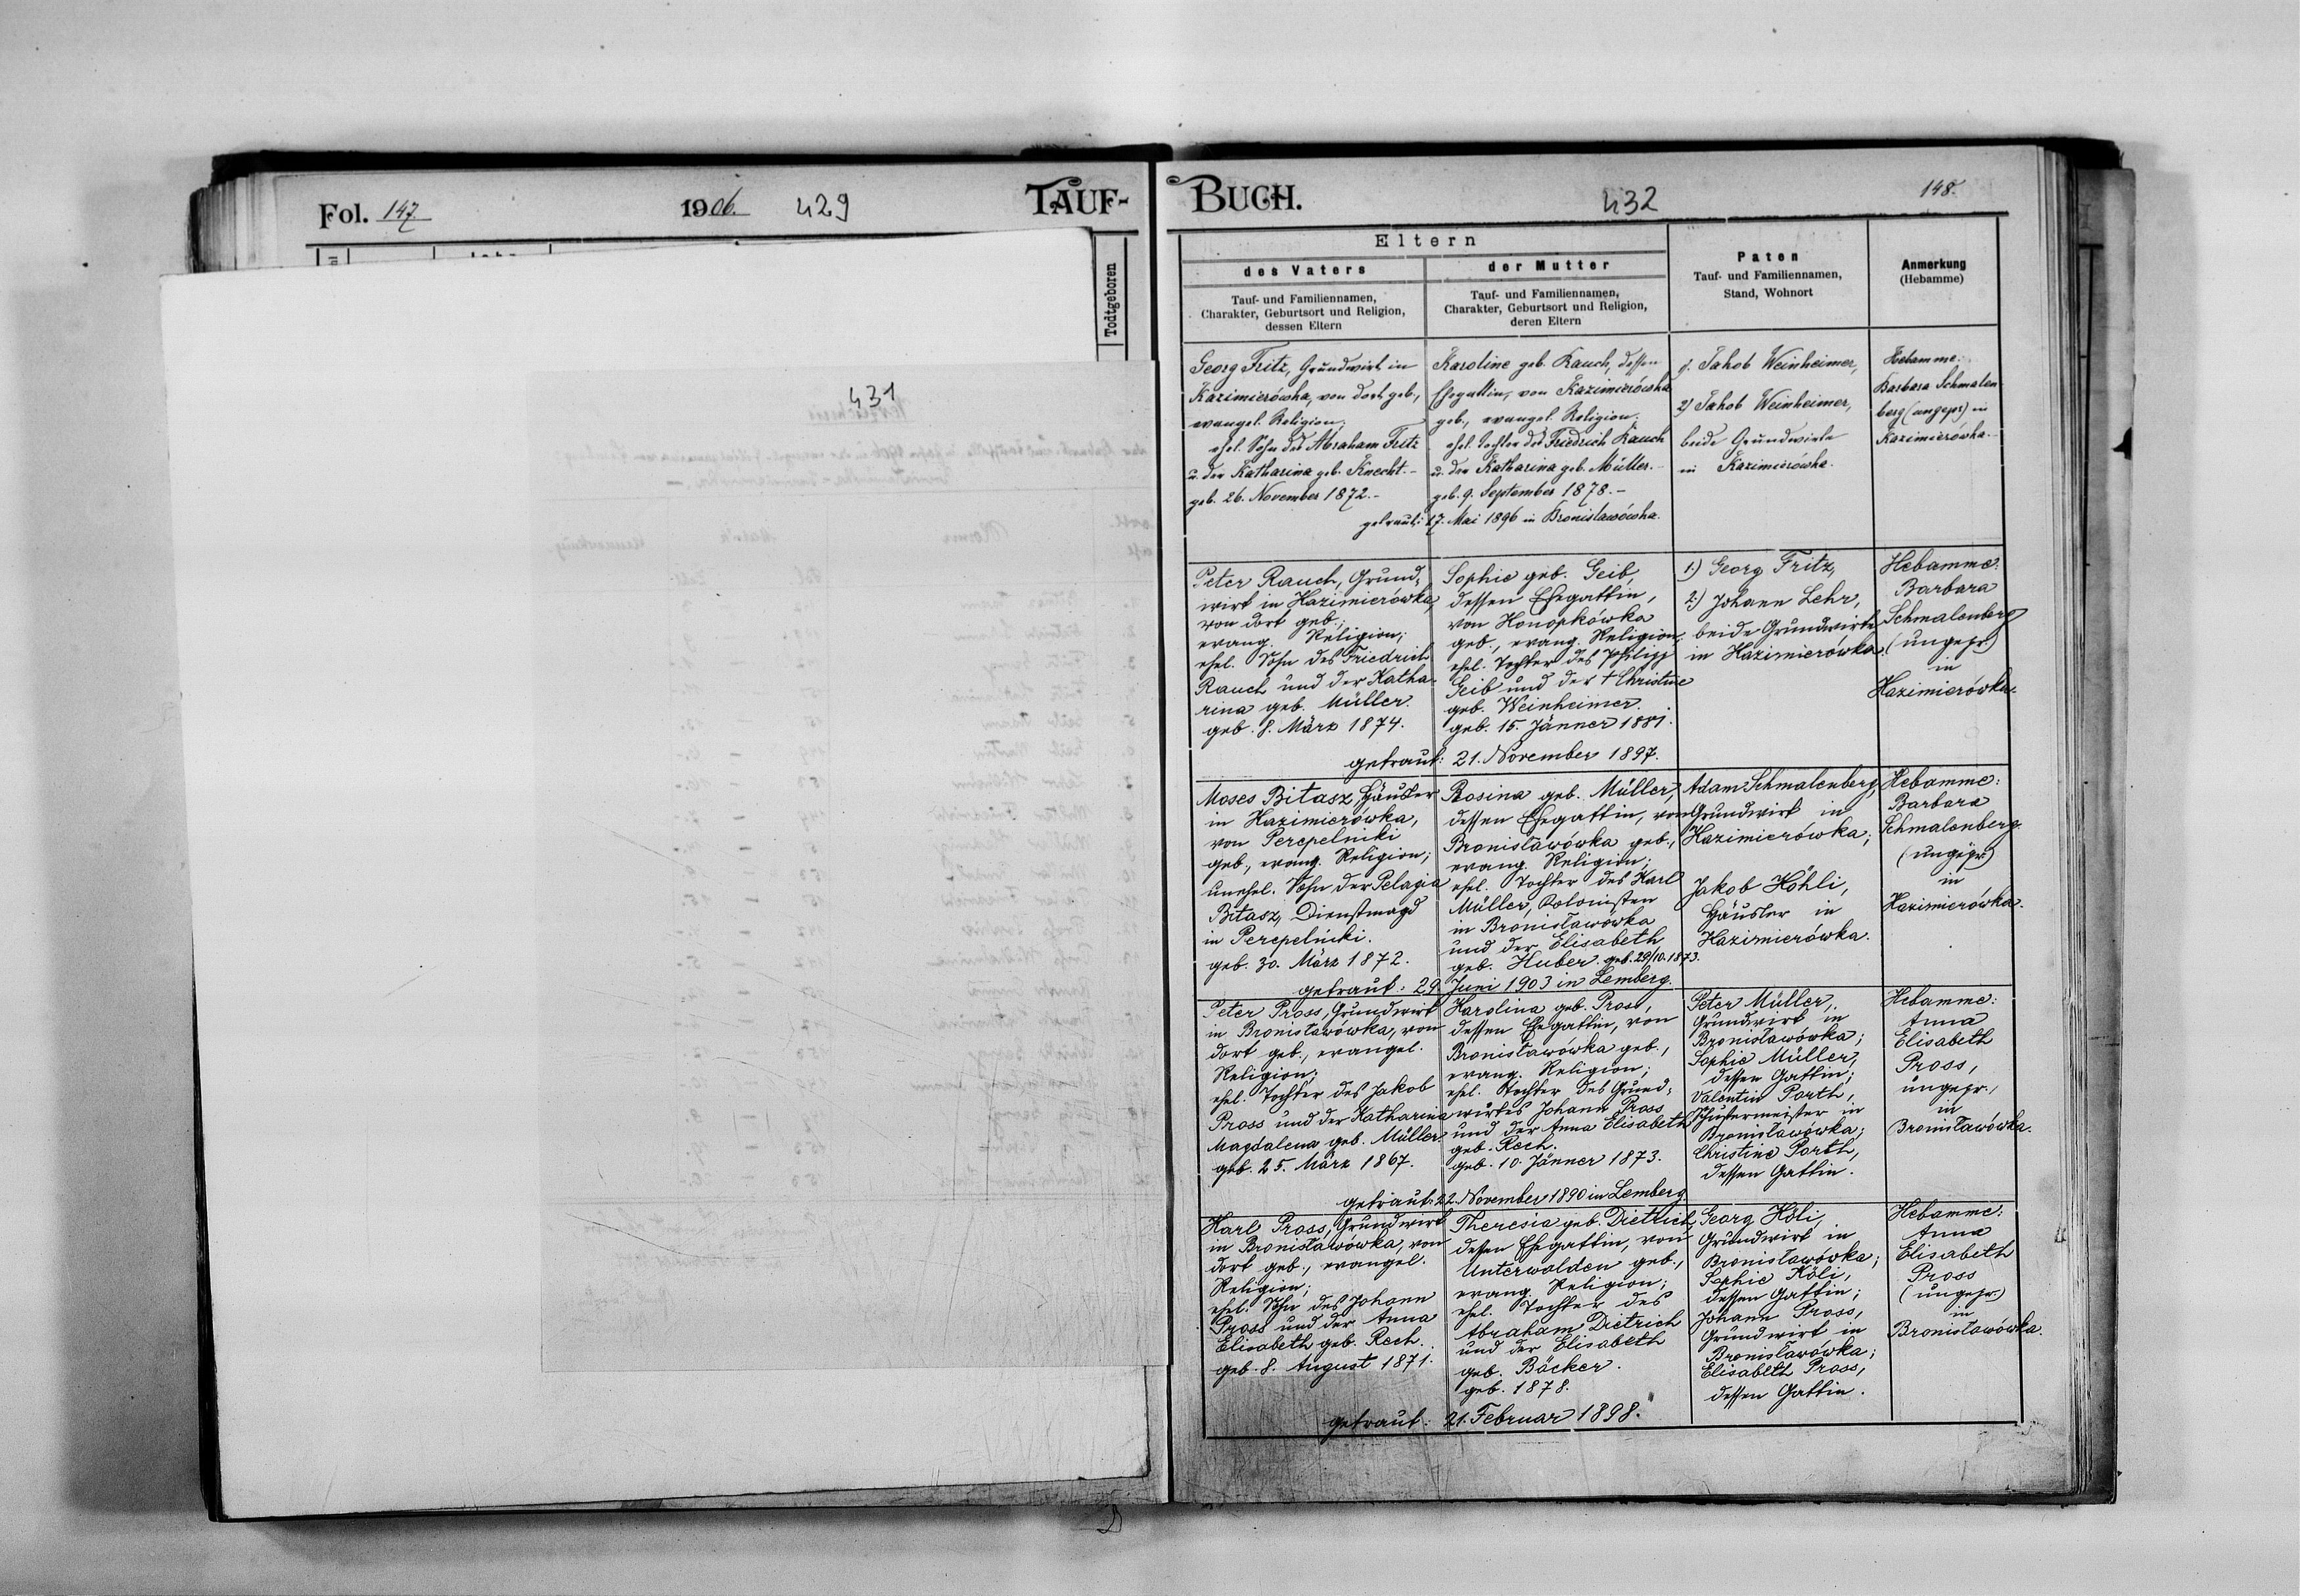 Fol. 147 1906. 429 TAUF-
Todtgeboren
431
BUCH. 432 148.
Eltern
des Vaters
Tauf- und Familiennamen,
Charakter, Geburtsort und Religion,
dessen Eltern
der Mutter
Tauf- und Familiennamen,
Charakter, Geburtsort und Religion,
deren Eltern
Paten
Tauf- und Familiennamen,
Stand, Wohnort
Anmerkung
(Hebamme)
Georg Fritz, Grundwirt in
Kazimierówka, von dort geb.,
evangel. Religion;
ehel. Sohn des Abraham Fritz
u. der Katharina geb. Knecht.-
geb. 26. November 1872.-
Karoline geb. Rauch, dessen
Ehegattin, von Kazimierówka
geb., evangel. Religion;
ehel. Tochter des Friedrich Rauch
u. der Katharina geb. Müller.-
geb. 9. September 1878.-
getraut: 17. Mai 1896 in Bronislawówka.
1. Jakob Weinheimer,
2) Jakob Weinheimer,
beide Grundwirte
in Kazimierówka.
Hebamme:
Barbara Schmalen-
berg (ungepr) in
Kazimierówka.-
Peter Rauch, Grund-
wirt in Kazimierówka,
von dort geb.,
evang. Religion;
ehel. Sohn des Friedrich
Rauch und der Katha-
rina geb. Müller.
geb. 8. März 1874.
Sophie geb. Geib,
dessen Ehegattin,
von Konopkówka
geb., evang. Religion;
ehel. Tochter des Philipp
Geib und der † Christine
geb. Weinheimer.
geb. 15. Jänner 1881.
getraut: 21. November 1897.
1.) Georg Fritz,
2.) Johann Lehr,
beide Grundwirte
in Kazimierówka.
Hebamme:
Barbara
Schmalenberg
(ungepr)
in
Kazimierówka.
Moses Bitasz, Häusler
in Kazimierówka,
von Perepelniki
geb., evang. Religion;
unehel. Sohn der Pelagia
Bitasz, Dienstmagd
in Perepelniki.
geb. 30. März 1872.
Rosina geb. Müller,
dessen Ehegattin, von
Bronisławówka geb.,
evang. Religion;
ehel. Tochter des Karl
Müller, Kolonisten
in Bronisławówka
und der Elisabeth
geb. Huber. geb. 29/10.1873.
getraut: 29. Juni 1903 in Lemberg.
Adam Schmalenberg,
Grundwirt in
Kazimierówka;
Jakob Höhli,
Häusler in
Kazimierówka.
Hebamme:
Barbara
Schmalenberg
(ungepr)
in
Kazimierówka.
Peter Pross, Grundwirt
in Bronisławówka, von
dort geb., evangel.
Religion;
ehel. Tochter des Jakob
Pross und der Katharina
Magdalena geb. Müller.
geb. 25. März 1867.
Karolina geb. Pross,
dessen Ehegattin, von
Bronisławówka geb.,
evang. Religion;
ehel. Tochter des Grund-
wirtes Johann Pross
und der Anna Elisabeth
geb. Rech.
geb. 10. Jänner 1873.
getraut: 22. November 1890 in Lemberg.
Peter Müller,
Grundwirt in
Bronisławówka;
Sophie Müller,
dessen Gattin;
Valentin Porth,
Schustermeister in
Bronisławówka;
Christine Porth,
dessen Gattin.
Hebamme:
Anna
Elisabeth
Pross,
ungepr.,
in
Bronisławówka.
Karl Pross, Grundwirt
in Bronisławówka, von
dort geb., evangel.
Religion;
ehel. Sohn des Johann
Pross und der Anna
Elisabeth geb. Rech.
geb. 8. August 1871.
Theresia geb. Dietrich,
dessen Ehegattin, von
Unterwalden geb.,
evang. Religion;
ehel. Tochter des
Abraham Dietrich
und der Elisabeth
geb. Bäcker.
geb. 1878.
getraut: 21. Februar 1898.
Georg Höli,
Grundwirt in
Bronisławówka;
Sophie Höli,
dessen Gattin;
Johann Pross,
Grundwirt in
Bronisławówka;
Elisabeth Pross,
dessen Gattin.
Hebamme:
Anna
Elisabeth
Pross
(ungepr)
in
Bronisławówka.